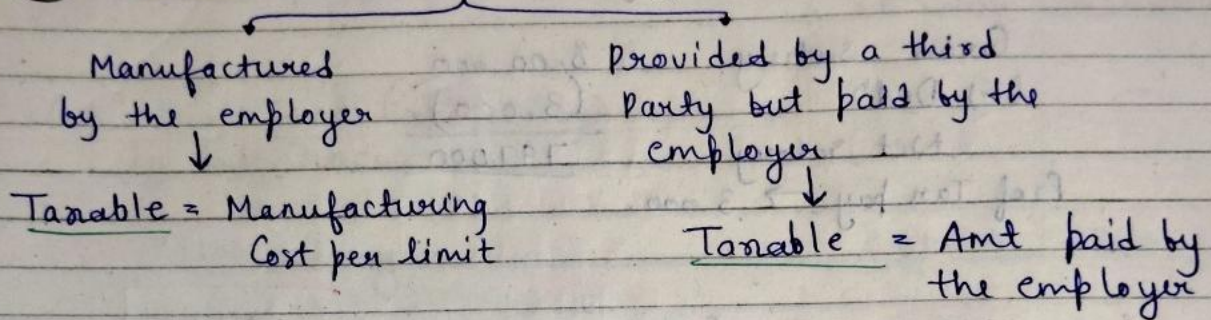 Manufactured
by the employer
↓
Taxable = Manufacturing
Cost per limit
Provided by a third
Party but paid by the
employer
↓
Taxable = Amt paid by
the employer